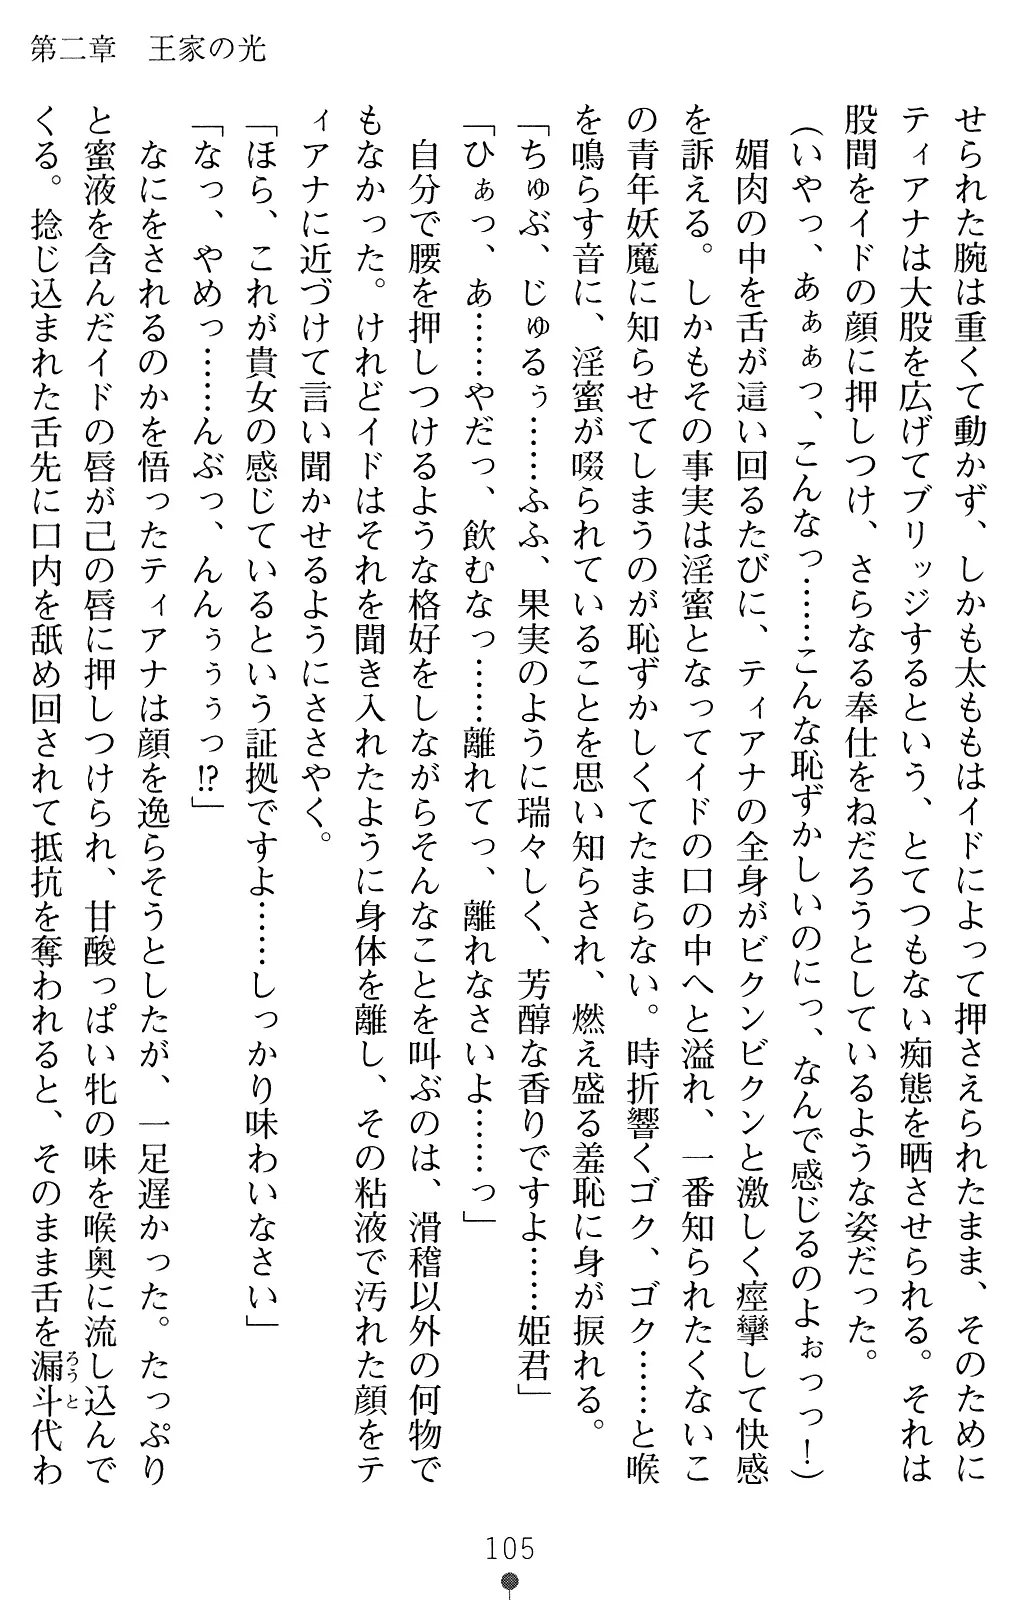 第二章　王家の光
せられた腕は重くて動かず、しかも太ももはイドによって押さえられたまま、そのために
ティアナは大股を広げてブリッジするという、とてつもない痴態を晒させられる。それは
股間をイドの顔に押しつけ、さらなる奉仕をねだろうとしているような姿だった。
（いやっ、あぁぁっ、こんなっ……こんな恥ずかしいのにっ、なんで感じるのよぉっっ！）
　媚肉の中を舌が這い回るたびに、ティアナの全身がビクンビクンと激しく痙攣して快感
を訴える。しかもその事実は淫蜜となってイドの口の中へと溢れ、一番知られたくないこ
の青年妖魔に知らせてしまうのが恥ずかしくてたまらない。時折響くゴク、ゴク……と喉
を鳴らす音に、淫蜜が啜られていることを思い知らされ、燃え盛る羞恥に身が捩れる。
「ちゅぶ、じゅるぅ……ふふ、果実のように瑞々しく、芳醇な香りですよ……姫君」
「ひぁっ、あ……やだっ、飲むなっ……離れてっ、離れなさいよ……っ」
　自分で腰を押しつけるような格好をしながらそんなことを叫ぶのは、滑稽以外の何物で
もなかった。けれどイドはそれを聞き入れたように身体を離し、その粘液で汚れた顔をテ
ィアナに近づけて言い聞かせるようにささやく。
「ほら、これが貴女の感じているという証拠ですよ……しっかり味わいなさい」
「なっ、やめっ……んぶっ、んんぅぅぅっ!?」
　なにをされるのかを悟ったティアナは顔を逸らそうとしたが、一足遅かった。たっぷり
と蜜液を含んだイドの唇が己の唇に押しつけられ、甘酸っぱい牝の味を喉奥に流し込んで
くる。捻じ込まれた舌先に口内を舐め回されて抵抗を奪われると、そのまま舌を漏斗代わ
ろうと
105